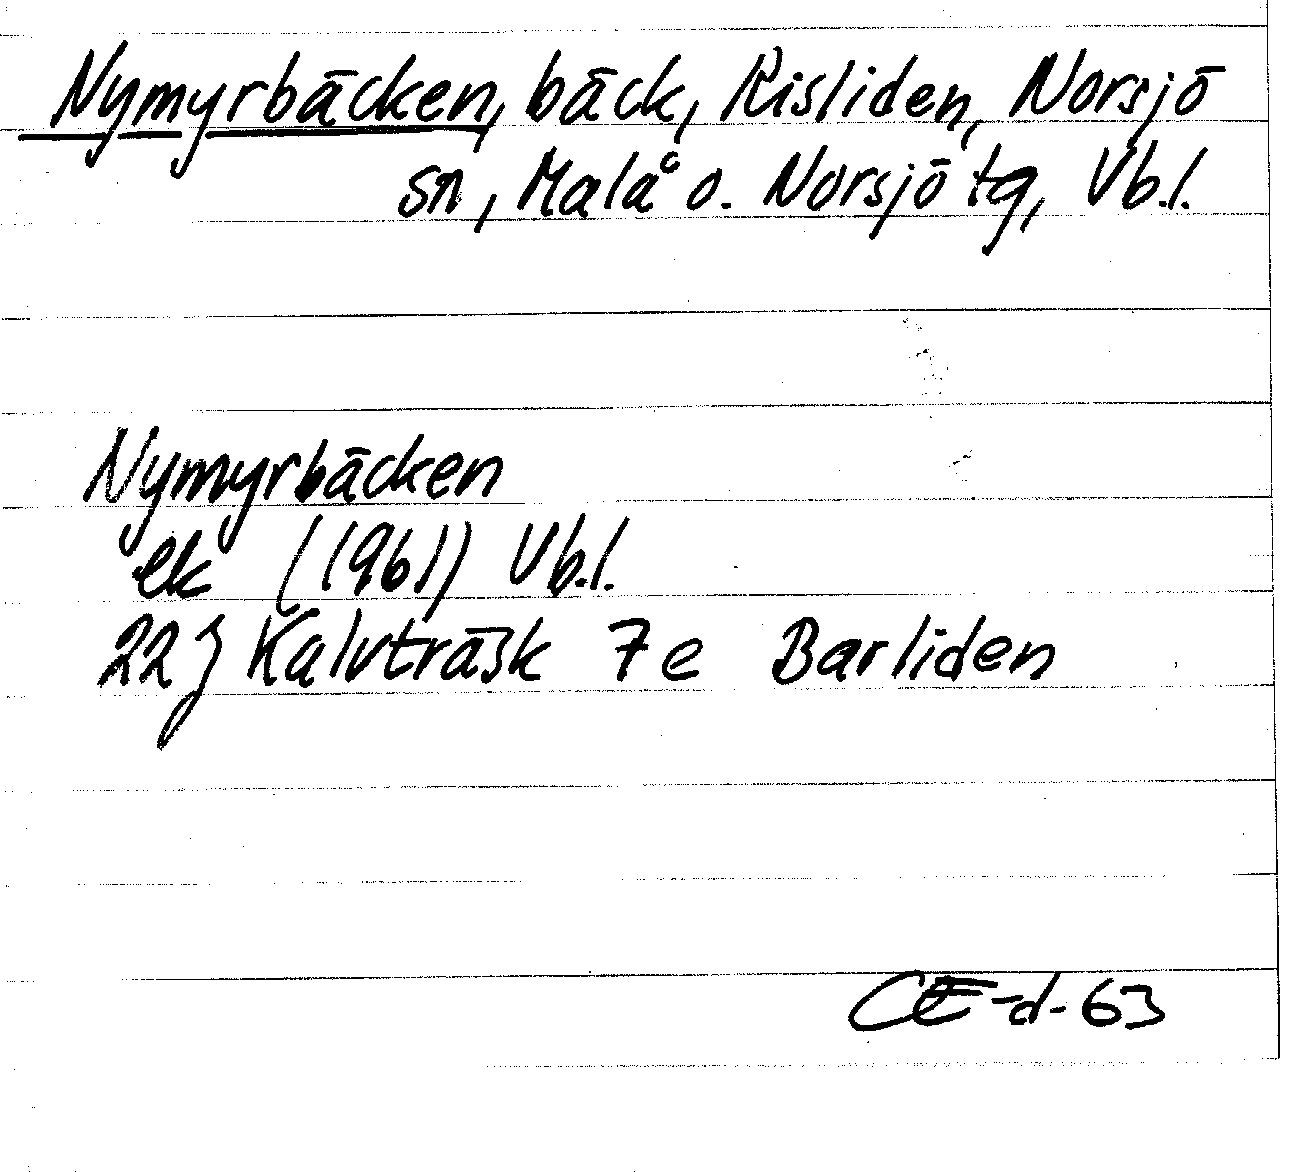 Nymyrbäcken, bäck, Risliden, Norsjö
sn, Malå o. Norsjö tg, Vb.l.
Nymyrbäcken
ek (1961) Vb.l.
22J Kalvträsk 7e Barliden
CE-d-63